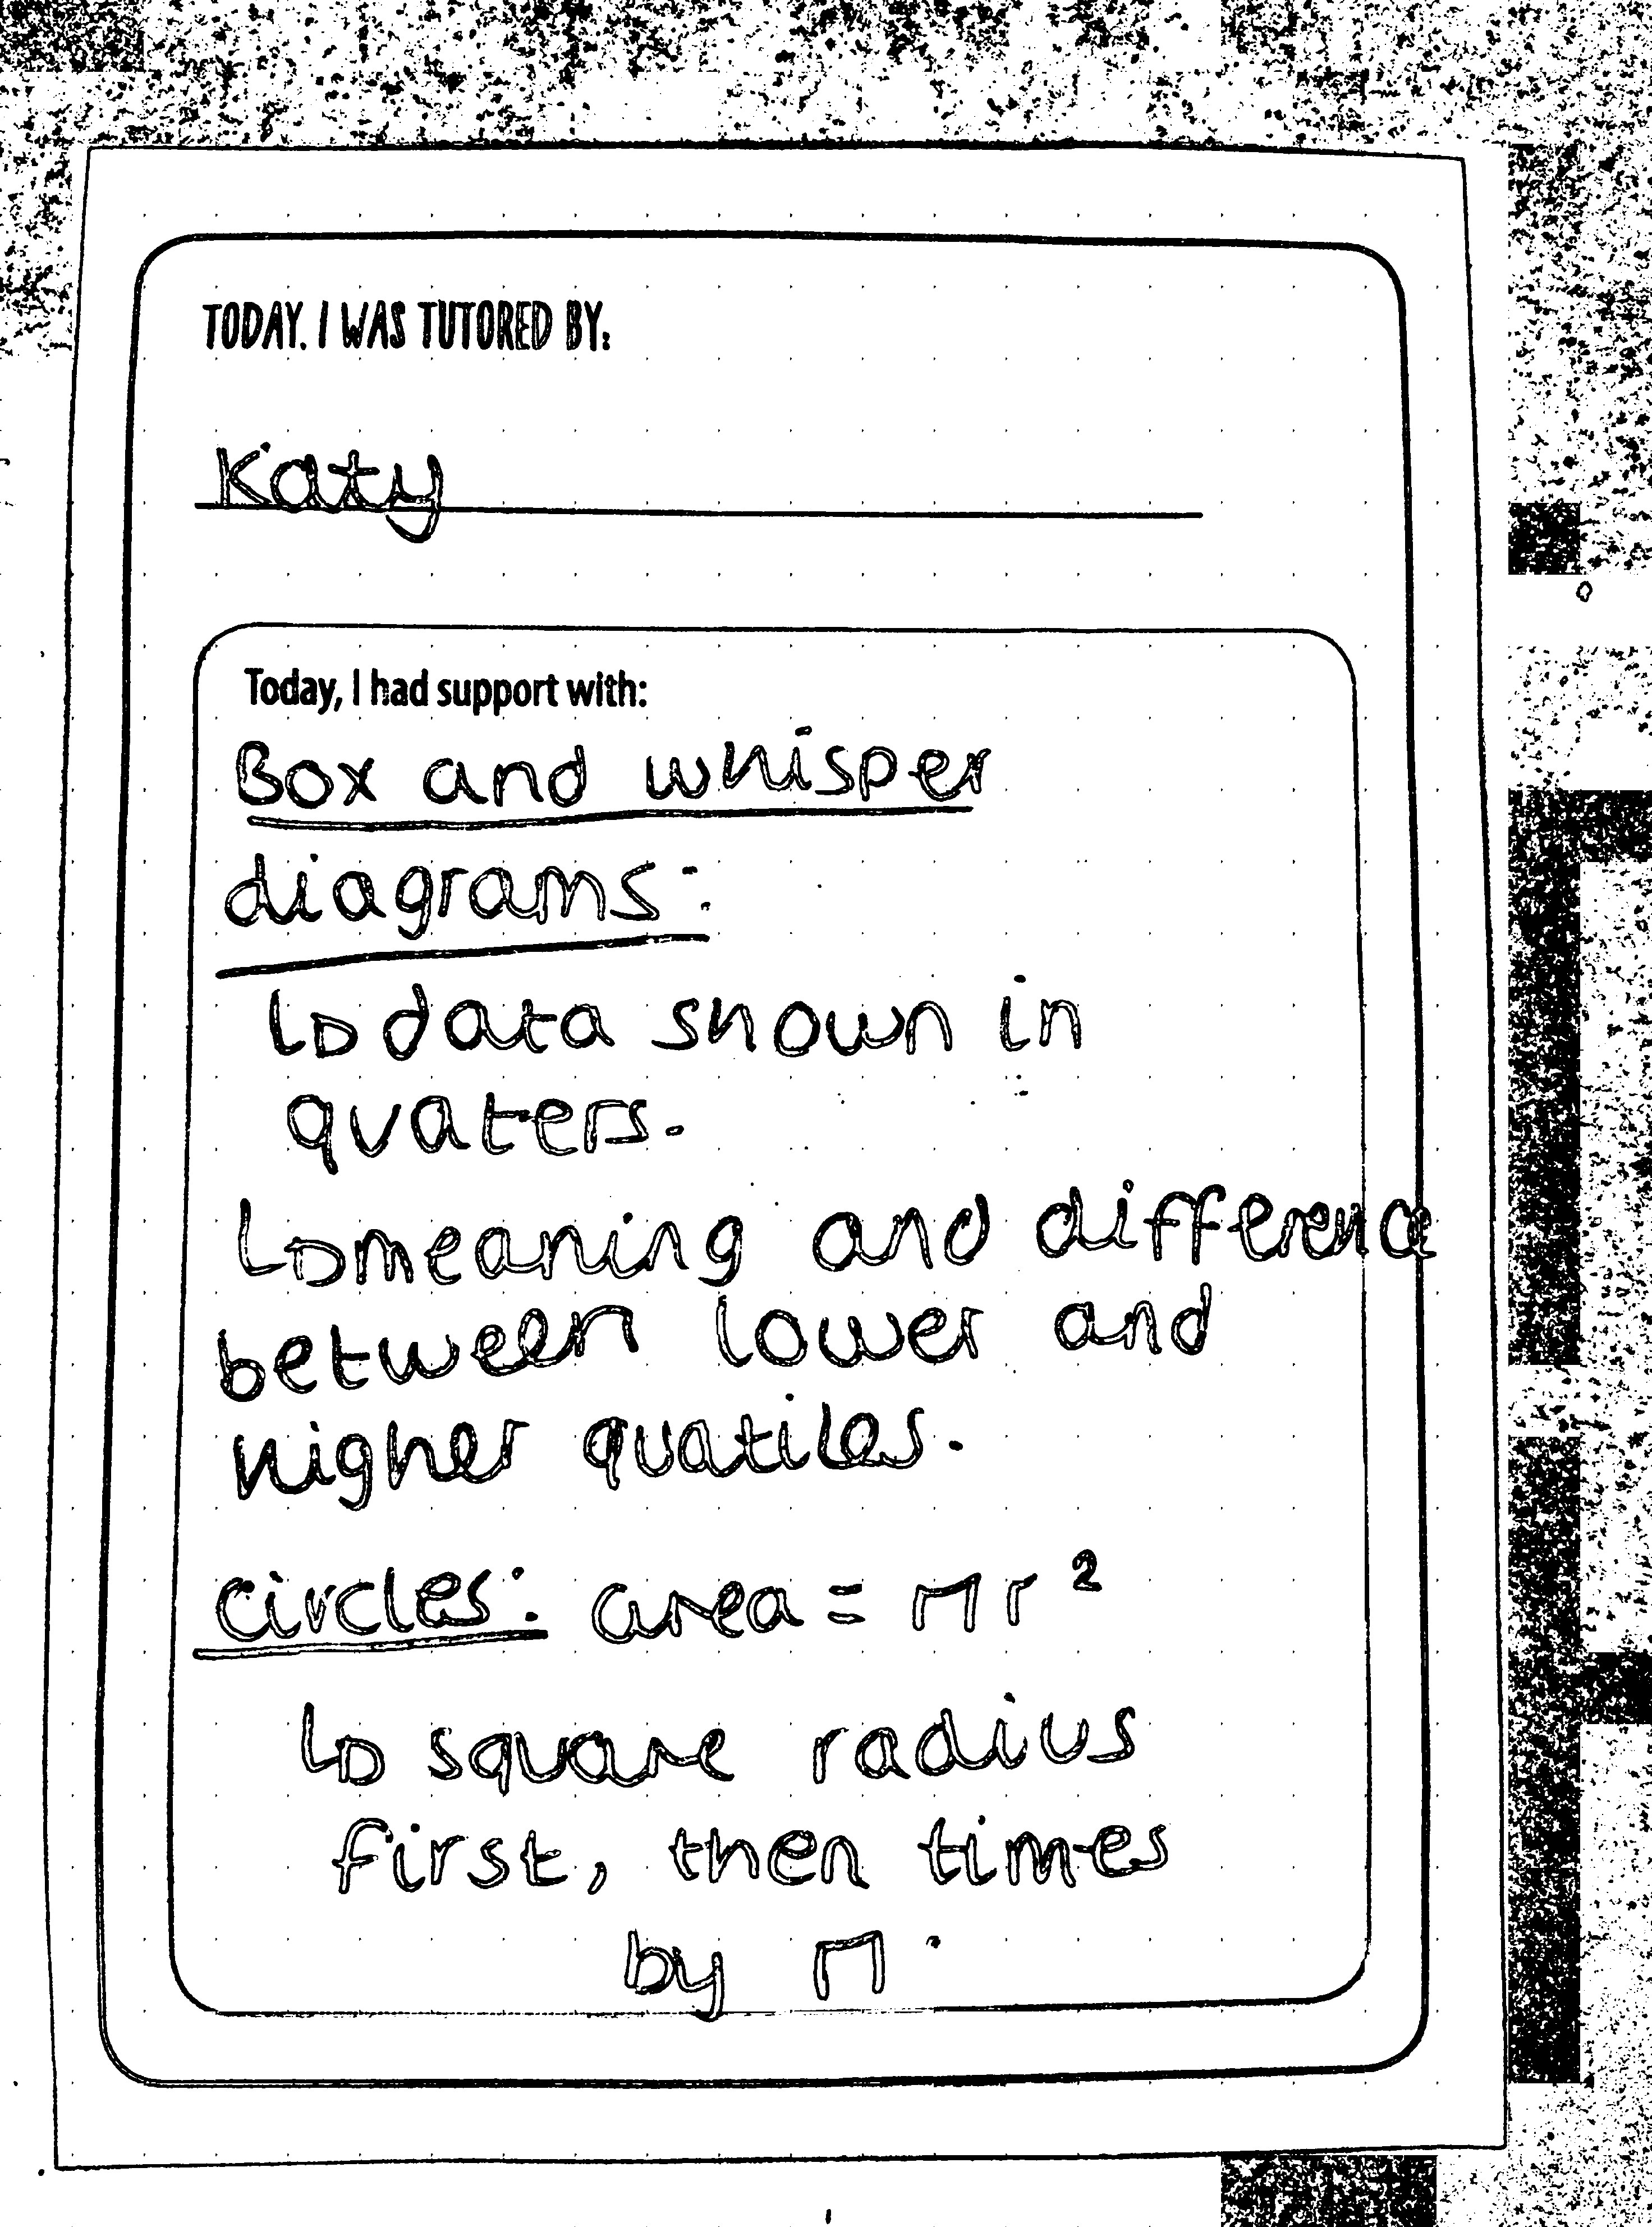 TODAY, I WAS TUTORED BY:
Katy
Today, I had support with:
Box and whisper
diagrams:
↳ data shown in
quaters.
↳ meaning and difference
between lower and
higher quatiles.
circles: area = πr²
↳ square radius
first, then times
by π.